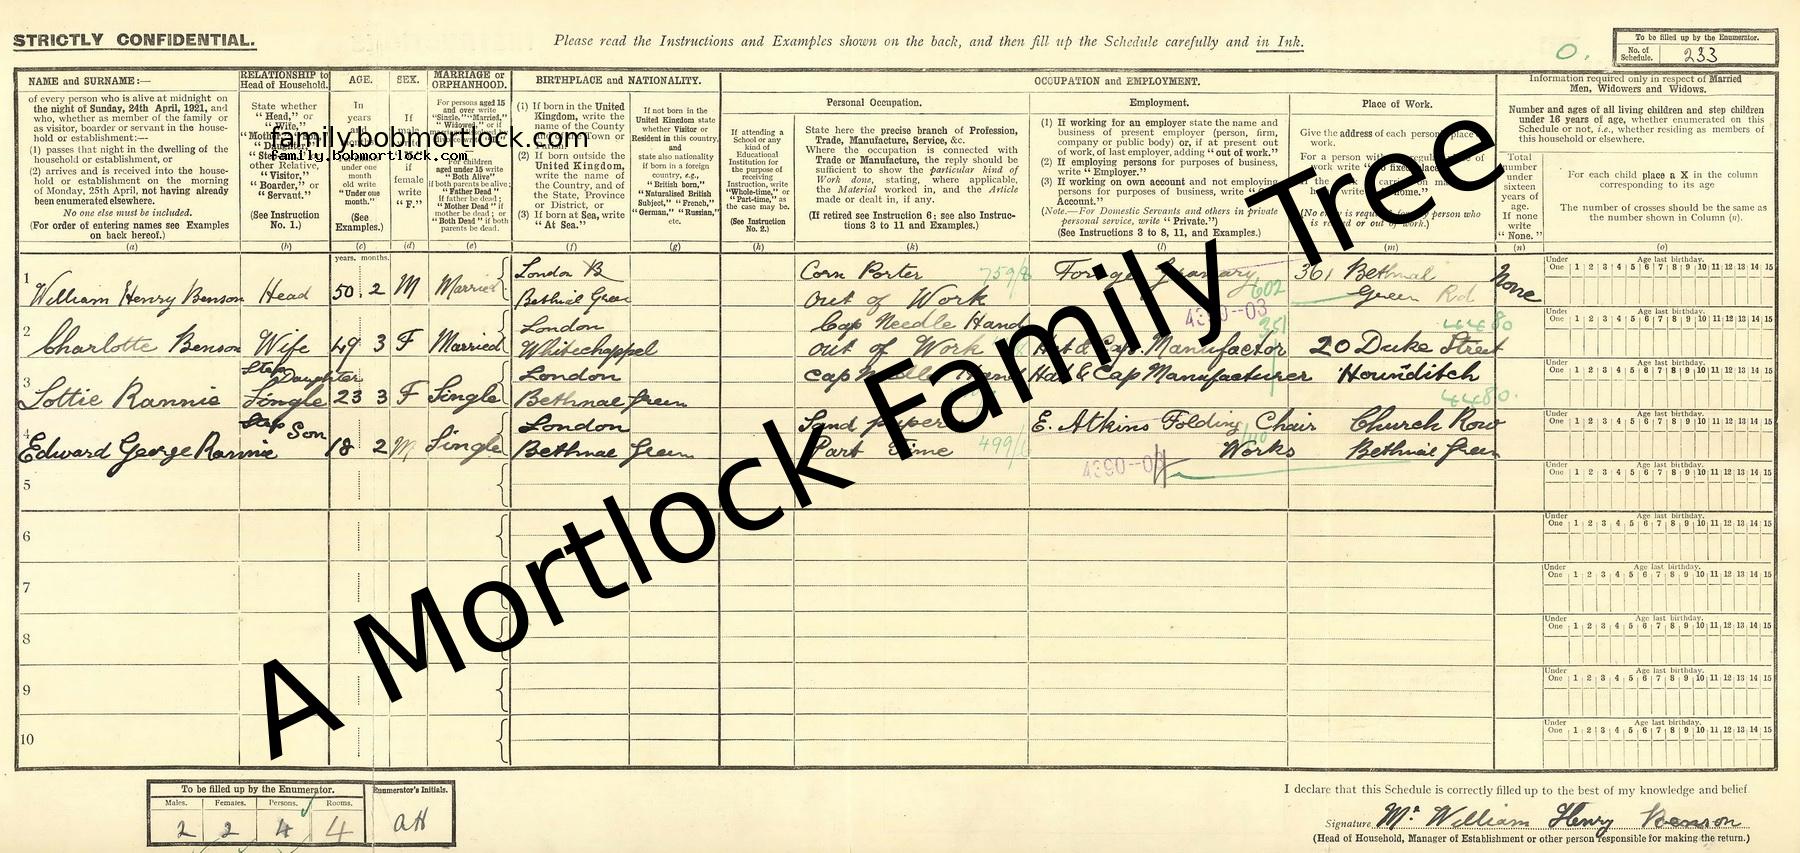 STRICTLY CONFIDENTIAL.
Please read the Instructions and Examples shown on the back, and then fill up the Schedule carefully and in Ink.
O.
To be filled up by the Enumerator.
No. of Schedule. 233
NAME and SURNAME:—
of every person who is alive at midnight on
the night of Sunday, 24th April, 1921, and
who, whether as member of the family or
as visitor, boarder or servant in the house-
hold or establishment:—
(1) passes that night in the dwelling of the
household or establishment, or
(2) arrives and is received into the house-
hold or establishment on the morning
of Monday, 25th April, not having already
been enumerated elsewhere.
No one else must be included.
(For order of entering names see Examples
on back hereof.)
(a)
RELATIONSHIP to
Head of Household.
State whether
"Head," or
"Wife,"
"Visitor,"
"Boarder," or
"Servant."
(See Instruction
No. 1.)
(b)
AGE.
In
years
(See
Examples.)
(c)
SEX.
If
female
write
"F."
(d)
MARRIAGE or
ORPHANHOOD.
For persons aged 15
and over write
aged under 15 write
"Both Alive"
if both parents be alive;
"Father Dead"
if father be dead;
"Mother Dead" if
mother be dead; or
"Both Dead" if both
parents be dead.
(e)
BIRTHPLACE and NATIONALITY.
(1) If born in the United
Kingdom, write the
name of the County
(2) If born outside the
United Kingdom,
write the name of
the Country, and of
the State, Province
or District, or
(3) If born at Sea, write
"At Sea."
(f)
If not born in the
United Kingdom state
whether Visitor or
Resident in this country
and
state also nationality
if born in a foreign
country, e.g.,
"British born,"
"Naturalised British
Subject," "French,"
"German," "Russian,"
etc.
(g)
OCCUPATION and EMPLOYMENT.
If attending a
School or any
kind of
Educational
Institution for
the purpose of
receiving
Instruction, write
"Whole-time," or
"Part-time," as
the case may be.
(See Instruction
No. 2.)
(h)
Personal Occupation.
State here the precise branch of Profession,
Trade, Manufacture, Service, &c.
Where the occupation is connected with
Trade or Manufacture, the reply should be
sufficient to show the particular kind of
Work done, stating, where applicable,
the Material worked in, and the Article
made or dealt in, if any.
(If retired see Instruction 6; see also Instruc-
tions 3 to 11 and Examples.)
(k)
Employment.
(1) If working for an employer state the name and
business of present employer (person, firm,
company or public body) or, if at present out
of work, of last employer, adding "out of work."
(2) If employing persons for purposes of business,
write "Employer."
(3) If working on own account and not employing
persons for purposes of business, write
Account."
(Note.—For Domestic Servants and others in private
personal service, write "Private.")
(See Instructions 3 to 8, 11, and Examples.)
(l)
Place of Work.
Give the address of each person's place of
work.
(m)
Information required only in respect of Married
Men, Widowers and Widows.
Number and ages of all living children and step children
under 16 years of age, whether enumerated on this
Schedule or not, i.e., whether residing as members of
this household or elsewhere.
Total
number
under
sixteen
years of
age.
If none
write
"None."
(n)
For each child place a X in the column
corresponding to its age
The number of crosses should be the same as
the number shown in Column (n).
(o)
family.bobmortlock.com
family.bobmortlock.com
years. months.
1 William Henry Benson Head 50. 2 M Married London Bethnal Green Corn Porter Out of Work Forage Granary 361 Bethnal Green Rd None
2 Charlotte Benson Wife 49 3 F Married London Whitechappel Cap Needle Hand Out of Work Hat & Cap Manufactor 20 Duke Street
3 Lottie Rannie Step Daughter Single 23 3 F Single London Bethnal Green Cap Needle Hand Hat & Cap Manufacturer Hounditch
4 Edward George Rannie Step Son 18 2 M Single London Bethnal Green Sand paperer Part Time E. Atkins Folding Chair Works Church Row Bethnal Green
5
6
7
8
9
10
759/8
602
4390--03
351
4480
4480.
499/
4390--03
Under One 1 2 3 4 5 6 7 8 9 10 11 12 13 14 15
Age last birthday.
A Mortlock Family Tree
To be filled up by the Enumerator.
Males. Females. Persons. Rooms.
2 2 4 4
Enumerator's Initials.
AH
I declare that this Schedule is correctly filled up to the best of my knowledge and belief
Signature Mr William Henry Benson
(Head of Household, Manager of Establishment or other person responsible for making the return.)